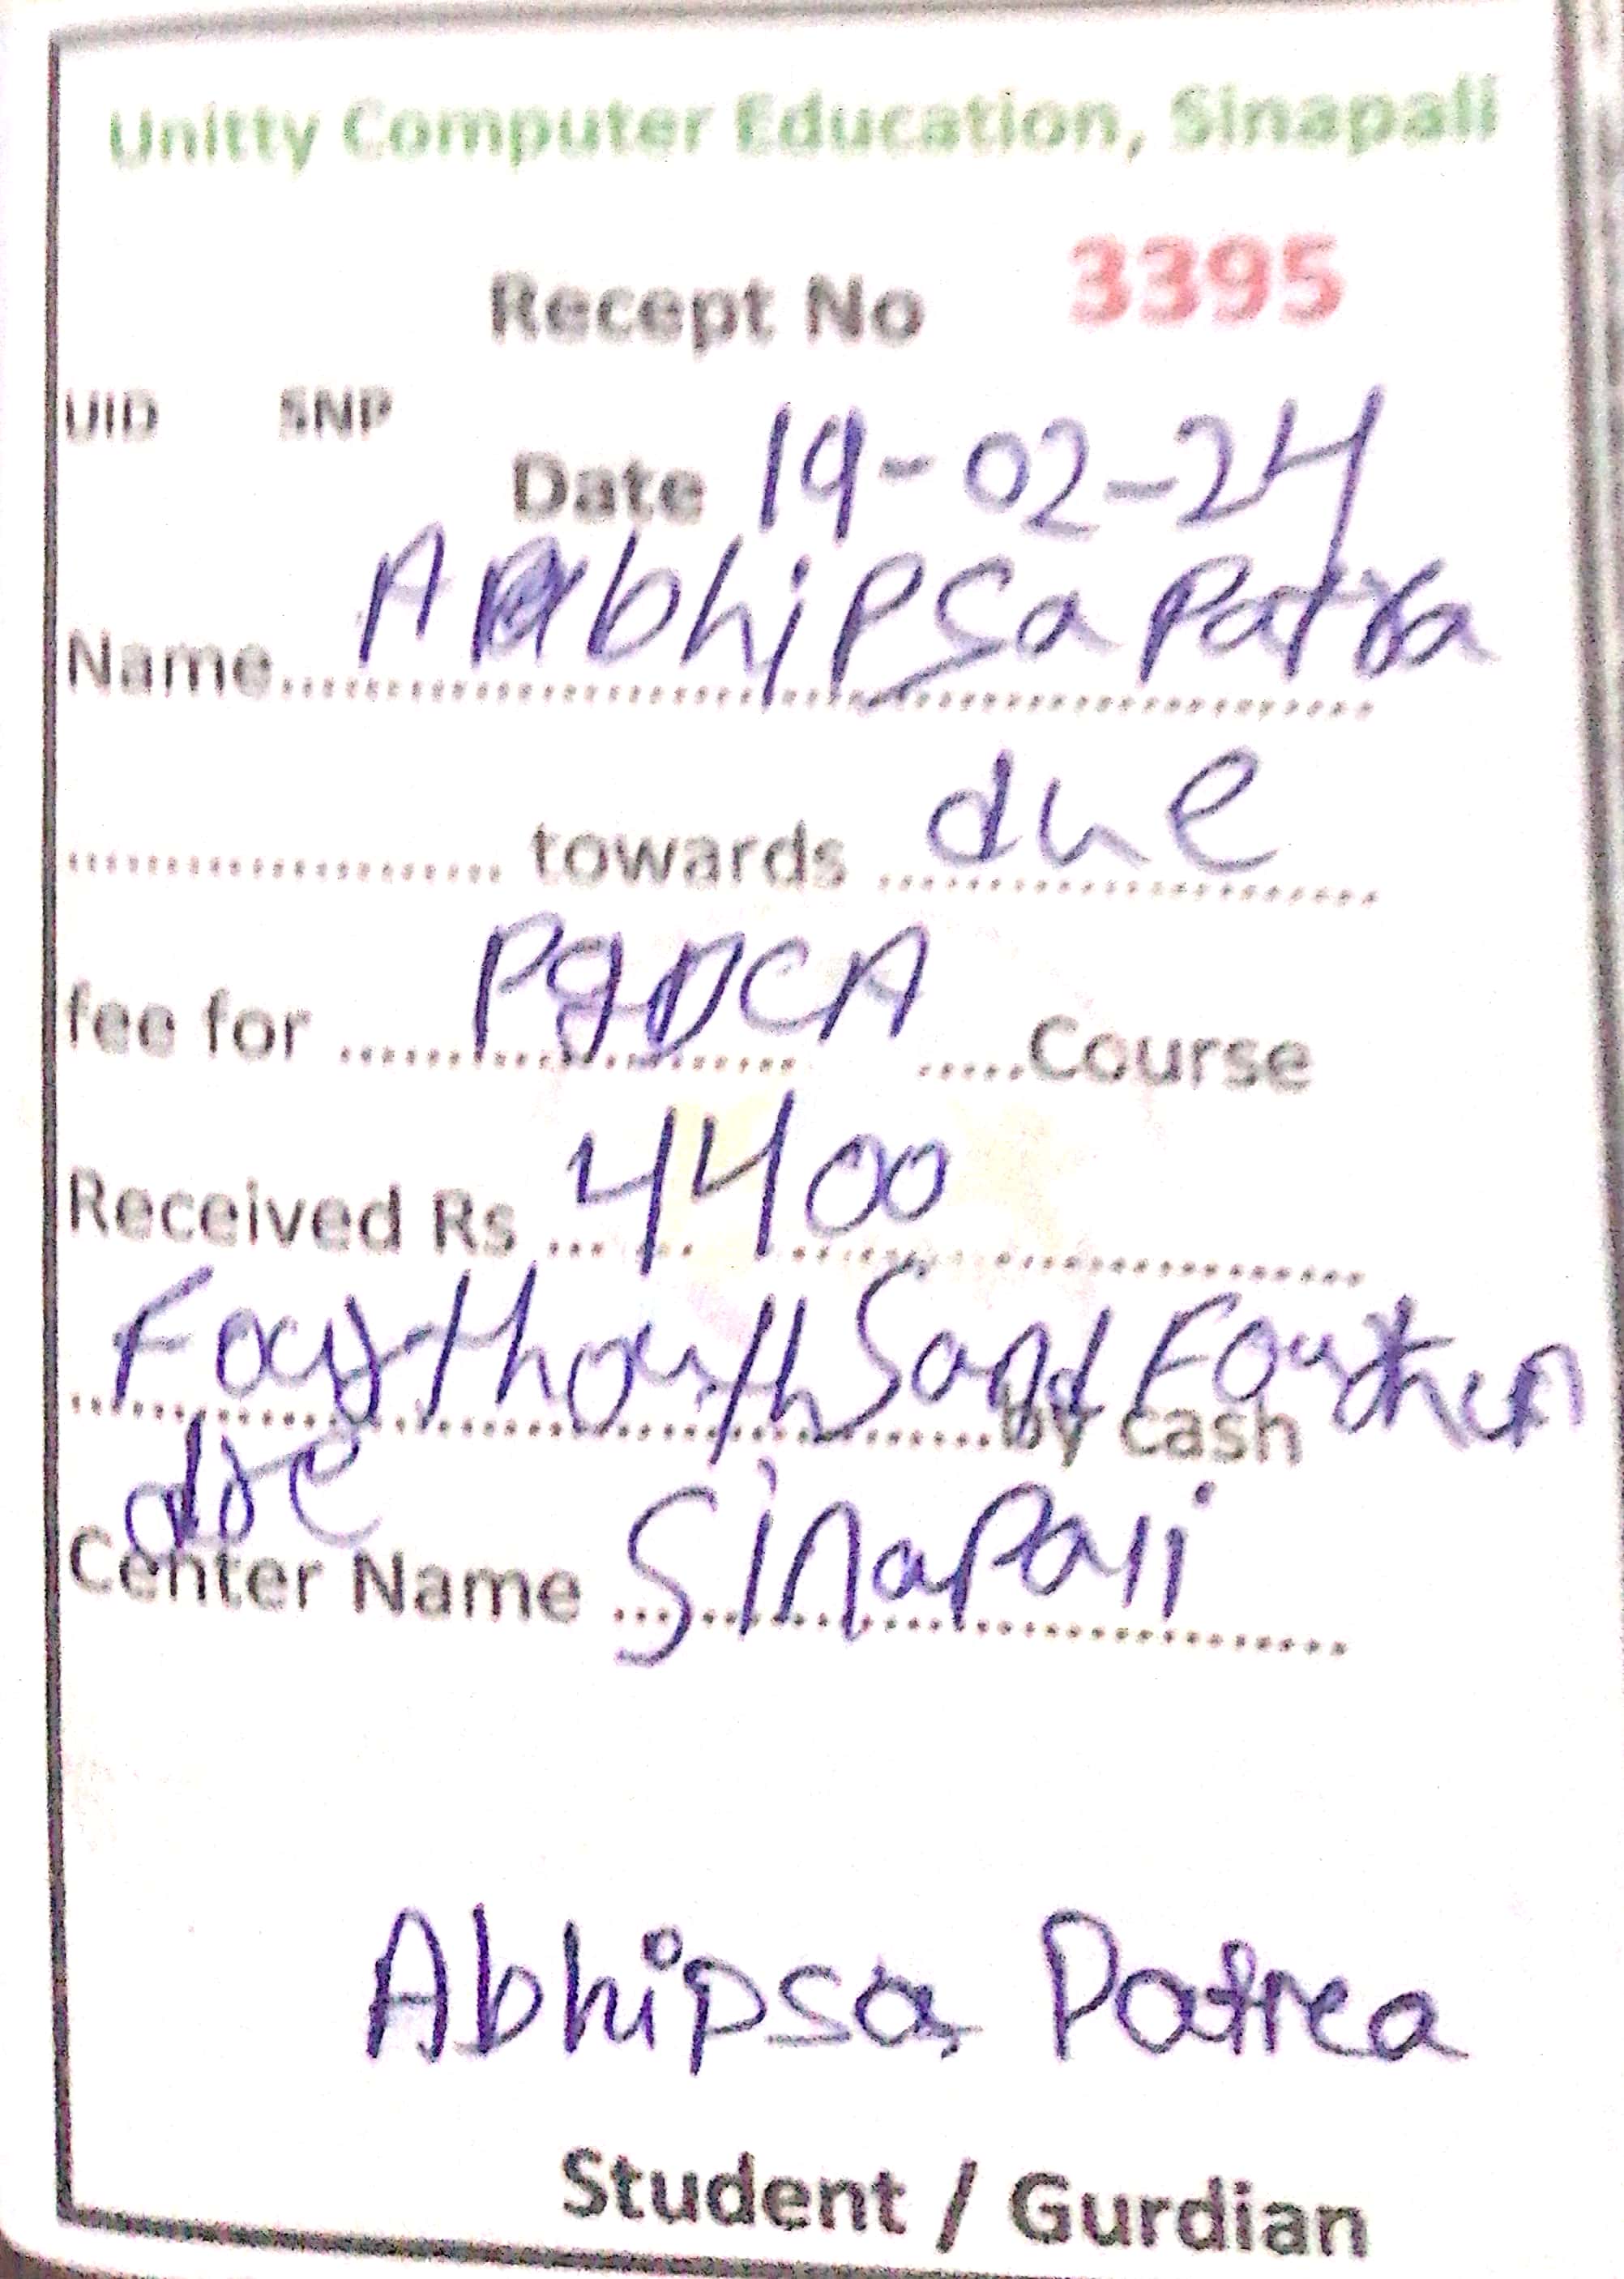 Unitty Computer Education, Sinapali
Recept No 3395
UID SNP
Date 19-02-24
Name Abhipsa Patra
towards due
fee for PgDCA Course
Received Rs 4400
by cash
Center Name Sinapali
Abhipsa Patrea
Student / Gurdian